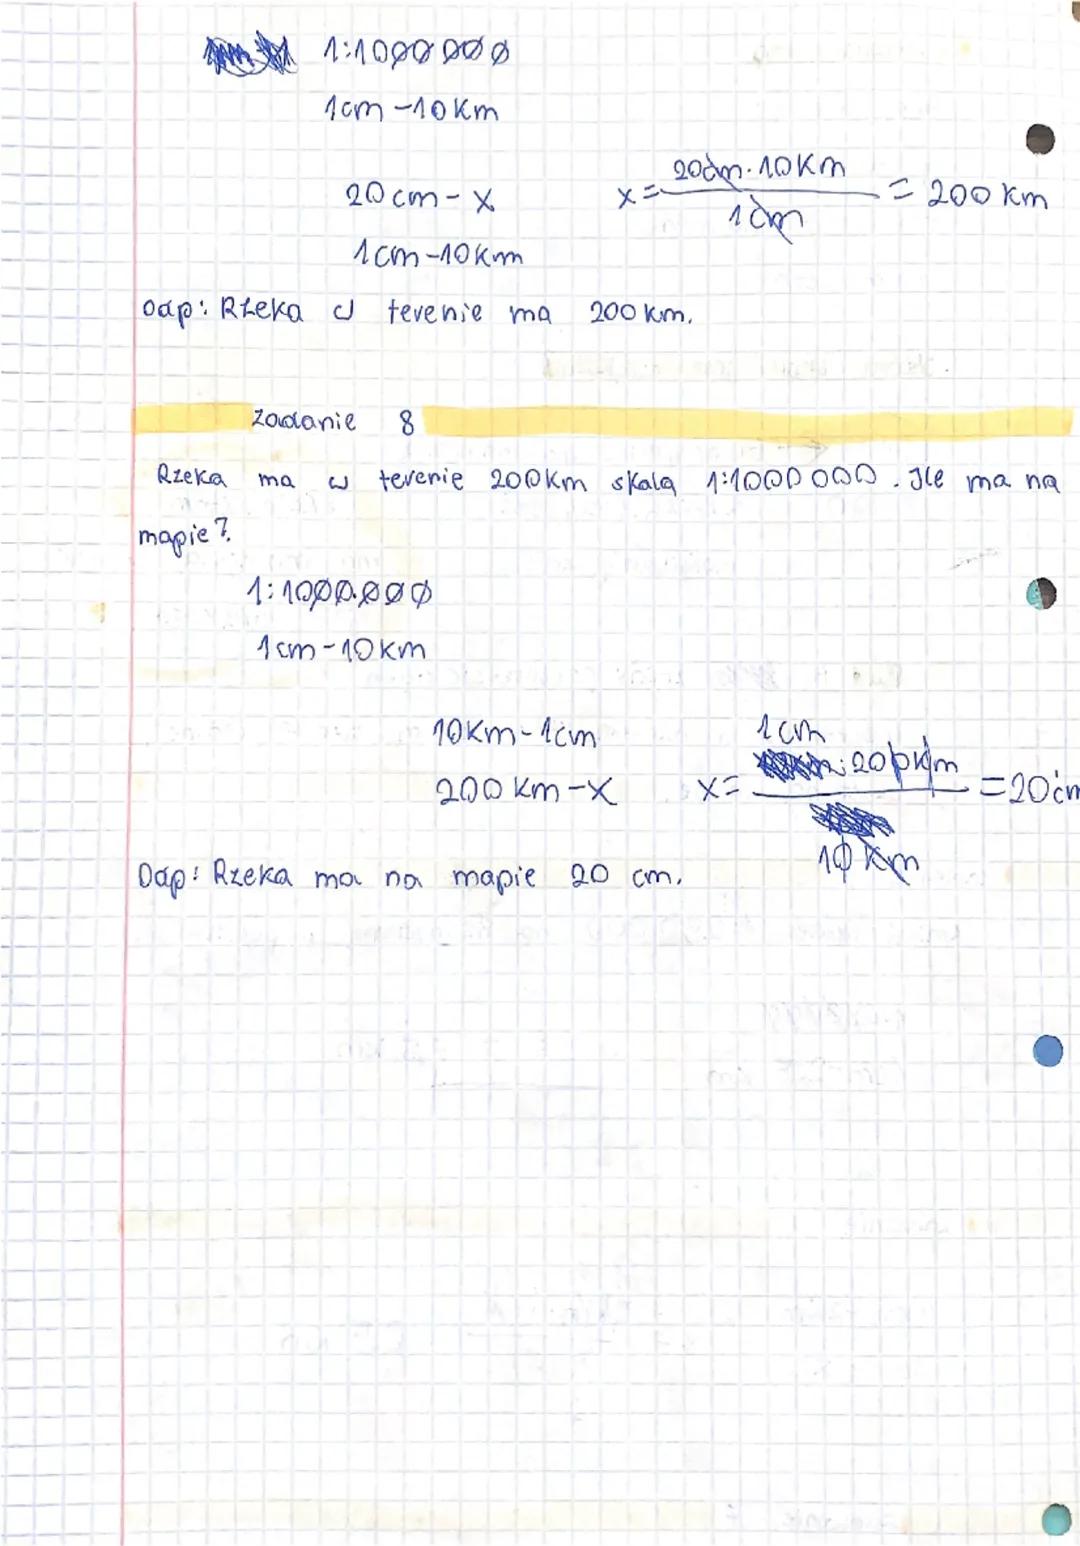 1:1000 000
1cm - 10 Km
20 cm - x x= 20cm · 10Km / 1cm = 200 km
1cm - 10Km
Odp: Rzeka w terenie ma 200 km.
Zadanie 8
Rzeka ma w terenie 200Km skala 1:1000 000. Ile ma na
mapie?
1:1000.000
1cm - 10 Km
10Km - 1cm
200 Km - x x= 1cm · 200km / 10 Km = 20cm
Odp: Rzeka ma na mapie 20 cm.